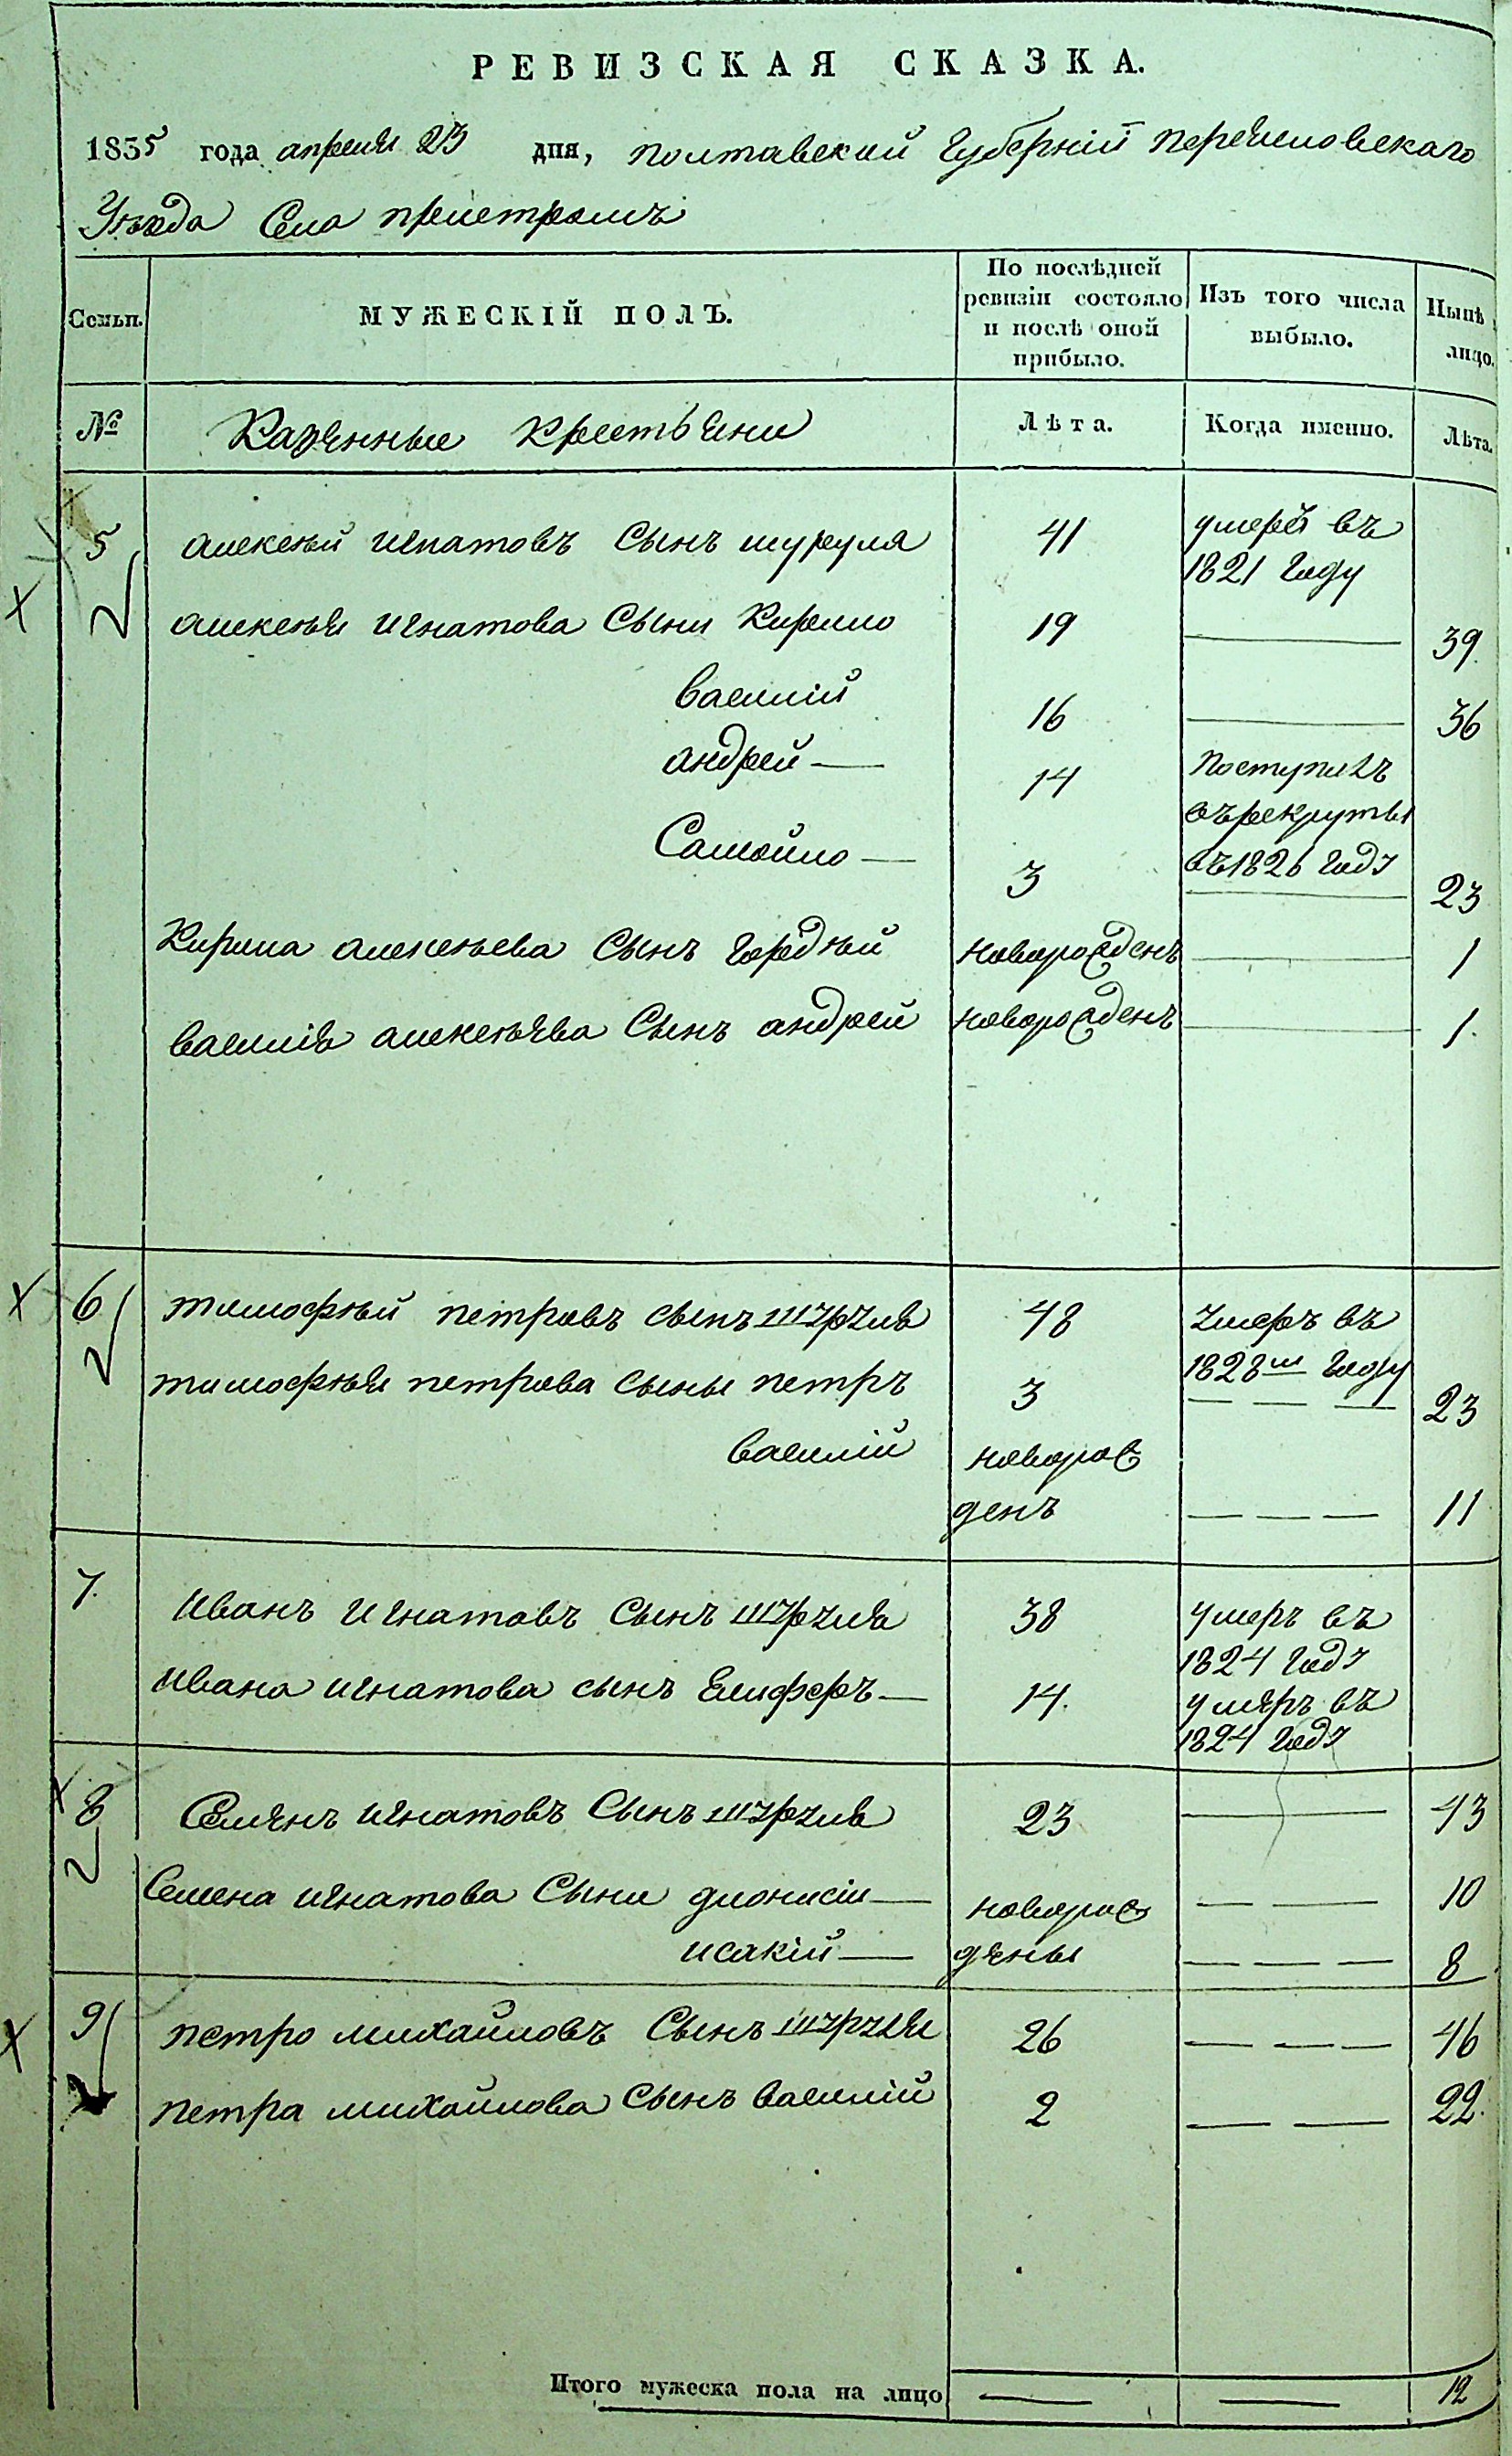 РЕВИЗСКАЯ СКАЗКА.
1835 года апреля 23 дня, полтавской Губерніи Переяславскаго
Уѣзда Села пристромъ
Семьи. МУЖЕСКІЙ ПОЛЪ. По послѣдней ревизіи состояло и послѣ оной прибыло. Изъ того числа выбыло. Нынѣ лицо.
№ Казенные крестьяне Лѣта. Когда именно. Лѣта.
5 алексѣй игнатовъ Сынъ шуруля 41 умеръ въ
1821 году
алексѣя игнатова Сыни Кирило 19 — 39
василій 16 — 36
андрей — 14 Поступилъ
въ рекруты
въ 1826 году
Самойло — 3 — 23
Кирила алексѣева Сынъ Гордѣй новорожденъ — 1
василія алексѣева Сынъ андрей новорожденъ — 1.
6 тимофѣй петровъ сынъ шуруля 48 умеръ въ
1828м году
тимофѣя петрова сыны петръ 3 — — — 23
василій новорож
денъ — — — 11
7. Иванъ игнатовъ Сынъ шуруля 38 умеръ въ
1824 году
Ивана игнатова сынъ Елиферъ — 14. умеръ въ
1824 году
8 Семенъ игнатовъ Сынъ шуруля 23 — 43
Семена игнатова Сыни дионисіи — новорож — — 10
исакій — дены — — — 8
9 петро михайловъ Сынъ шуруля 26 — — — 46
петра михайлова Сынъ василій 2 — — 22.
Итого мужеска пола на лицо — — 12